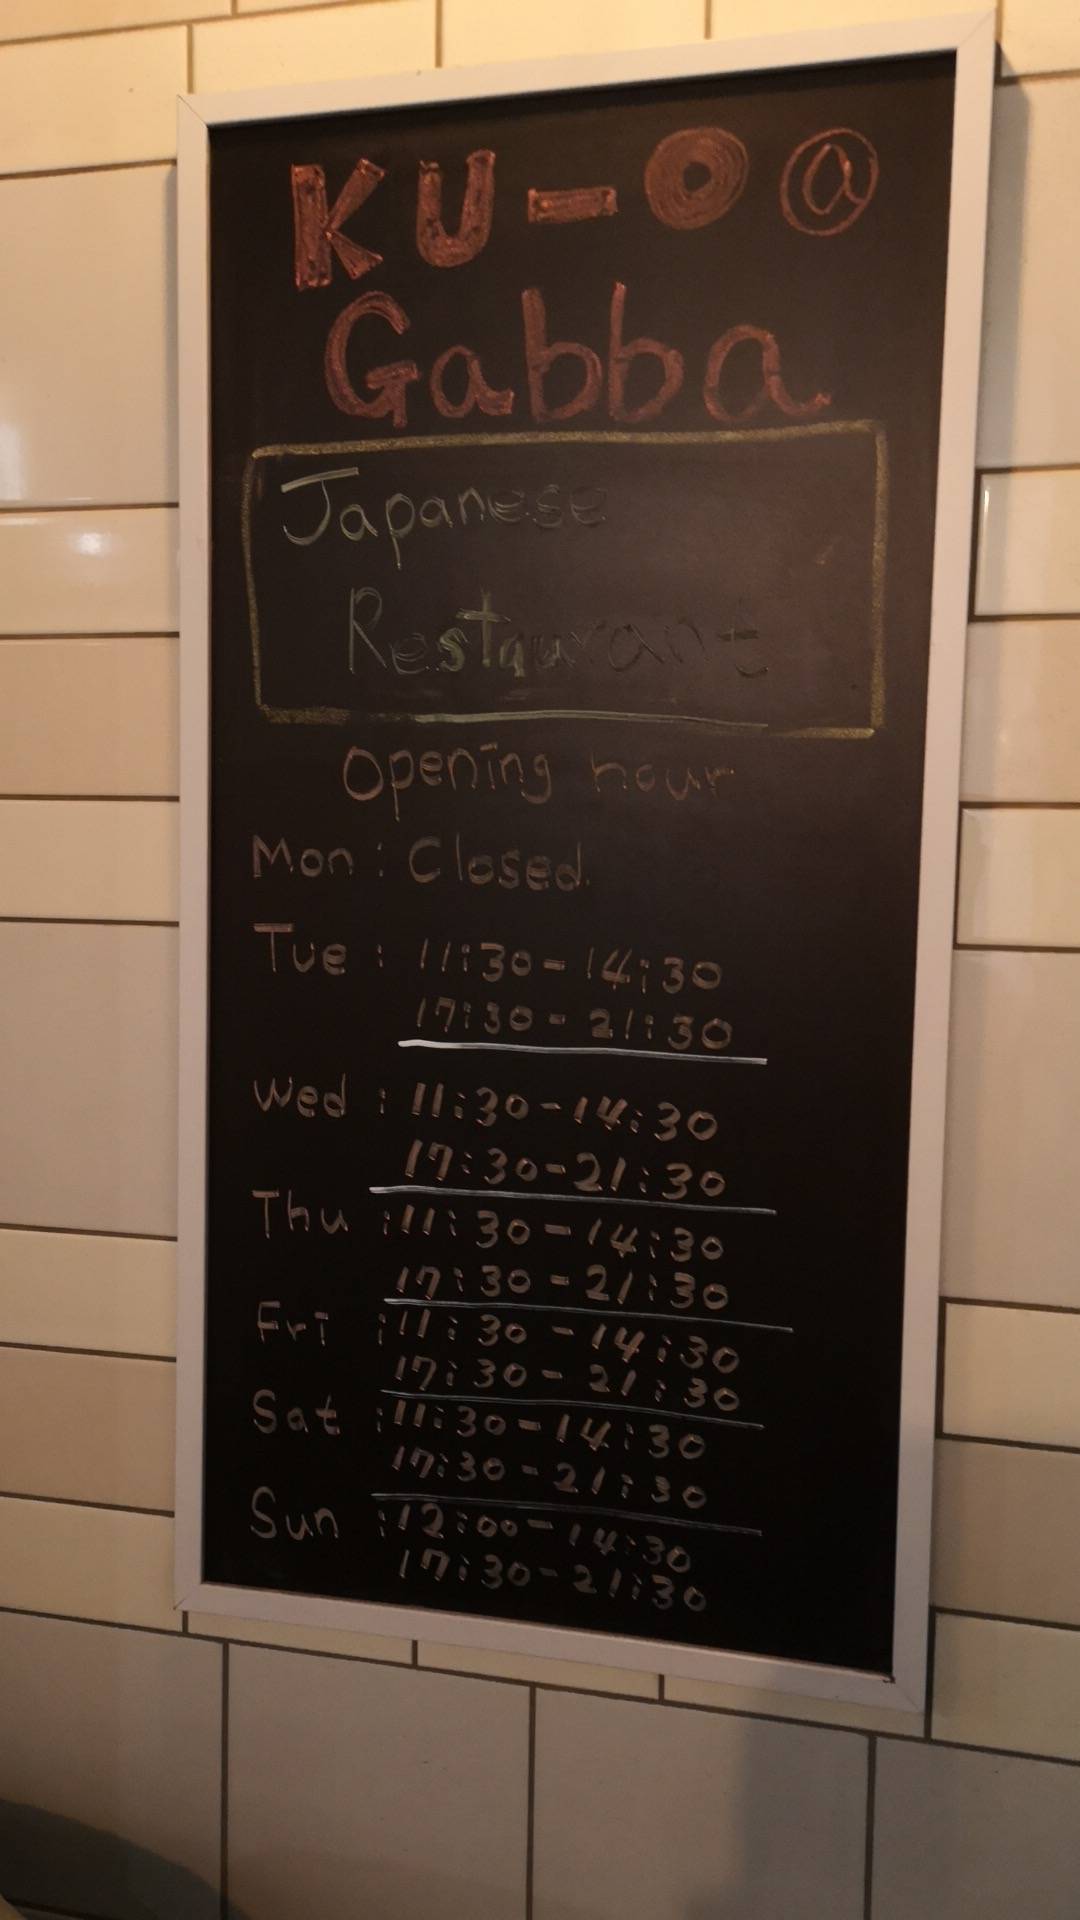 KU-O @
Gabba
Japanese
Restaurant
Opening hour
Mon : Closed.
Tue : 11:30-14:30
17:30-21:30
Wed : 11:30-14:30
17:30-21:30
Thu : 11:30-14:30
17:30-21:30
Fri : 11:30-14:30
17:30-21:30
Sat : 11:30-14:30
17:30-21:30
Sun : 12:00-14:30
17:30-21:30